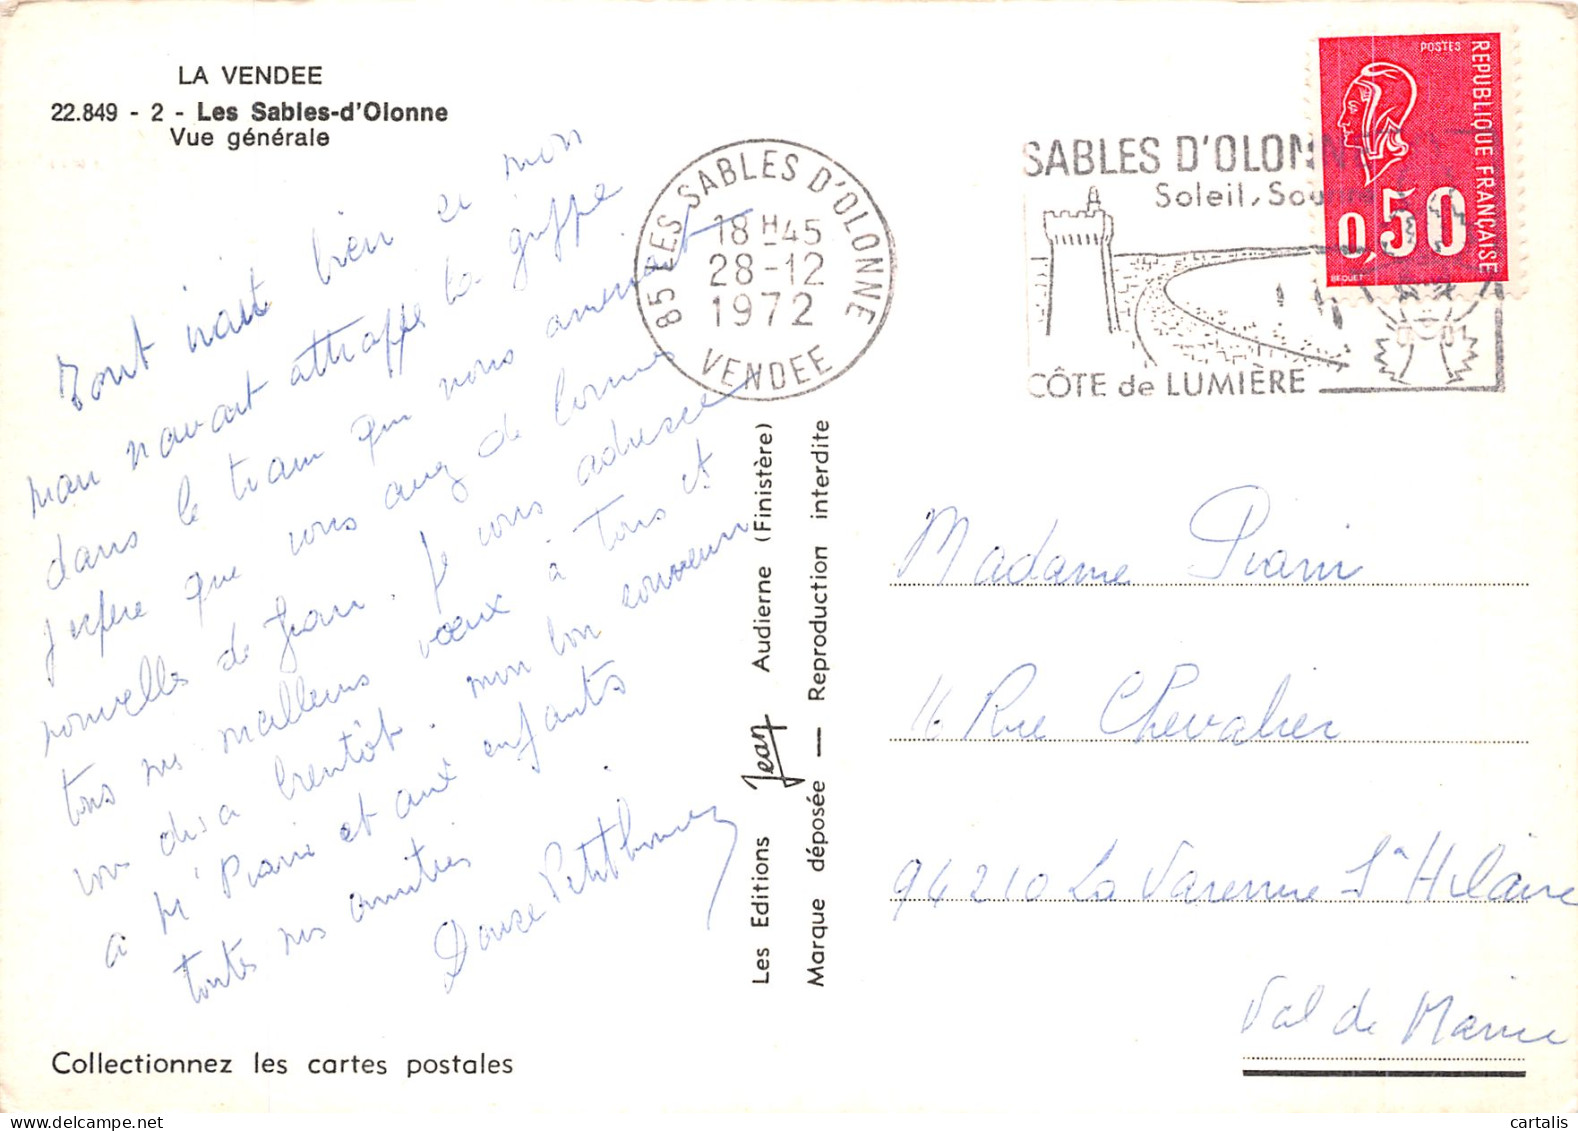 LA VENDEE
22.849 - 2 - Les Sables-d'Olonne
Vue générale
Tout irait bien si mon
mari n'avait attrappé la grippe
dans le train qui nous amenait
J'espère que vous avez de bonnes
nouvelles de Jean. Je vous adresse
tous mes meilleurs voeux à tous et
vous dis à bientôt. mon bon souvenir
à Mr Piani et aux enfants
toutes mes amitiés
Collectionnez les cartes postales
85 LES SABLES D'OLONNE
18 H 45
28-12
1972
VENDEE
SABLES D'OLONNE
Soleil, Sou
CÔTE de LUMIÈRE
POSTES
REPUBLIQUE FRANÇAISE
0,50
BEQUET
Les Editions Jean Audierne (Finistère)
Marque déposée — Reproduction interdite
Madame Piani
16 Rue Chevalier
94210 La Varenne St Hilaire
Val de Marne
cartalis